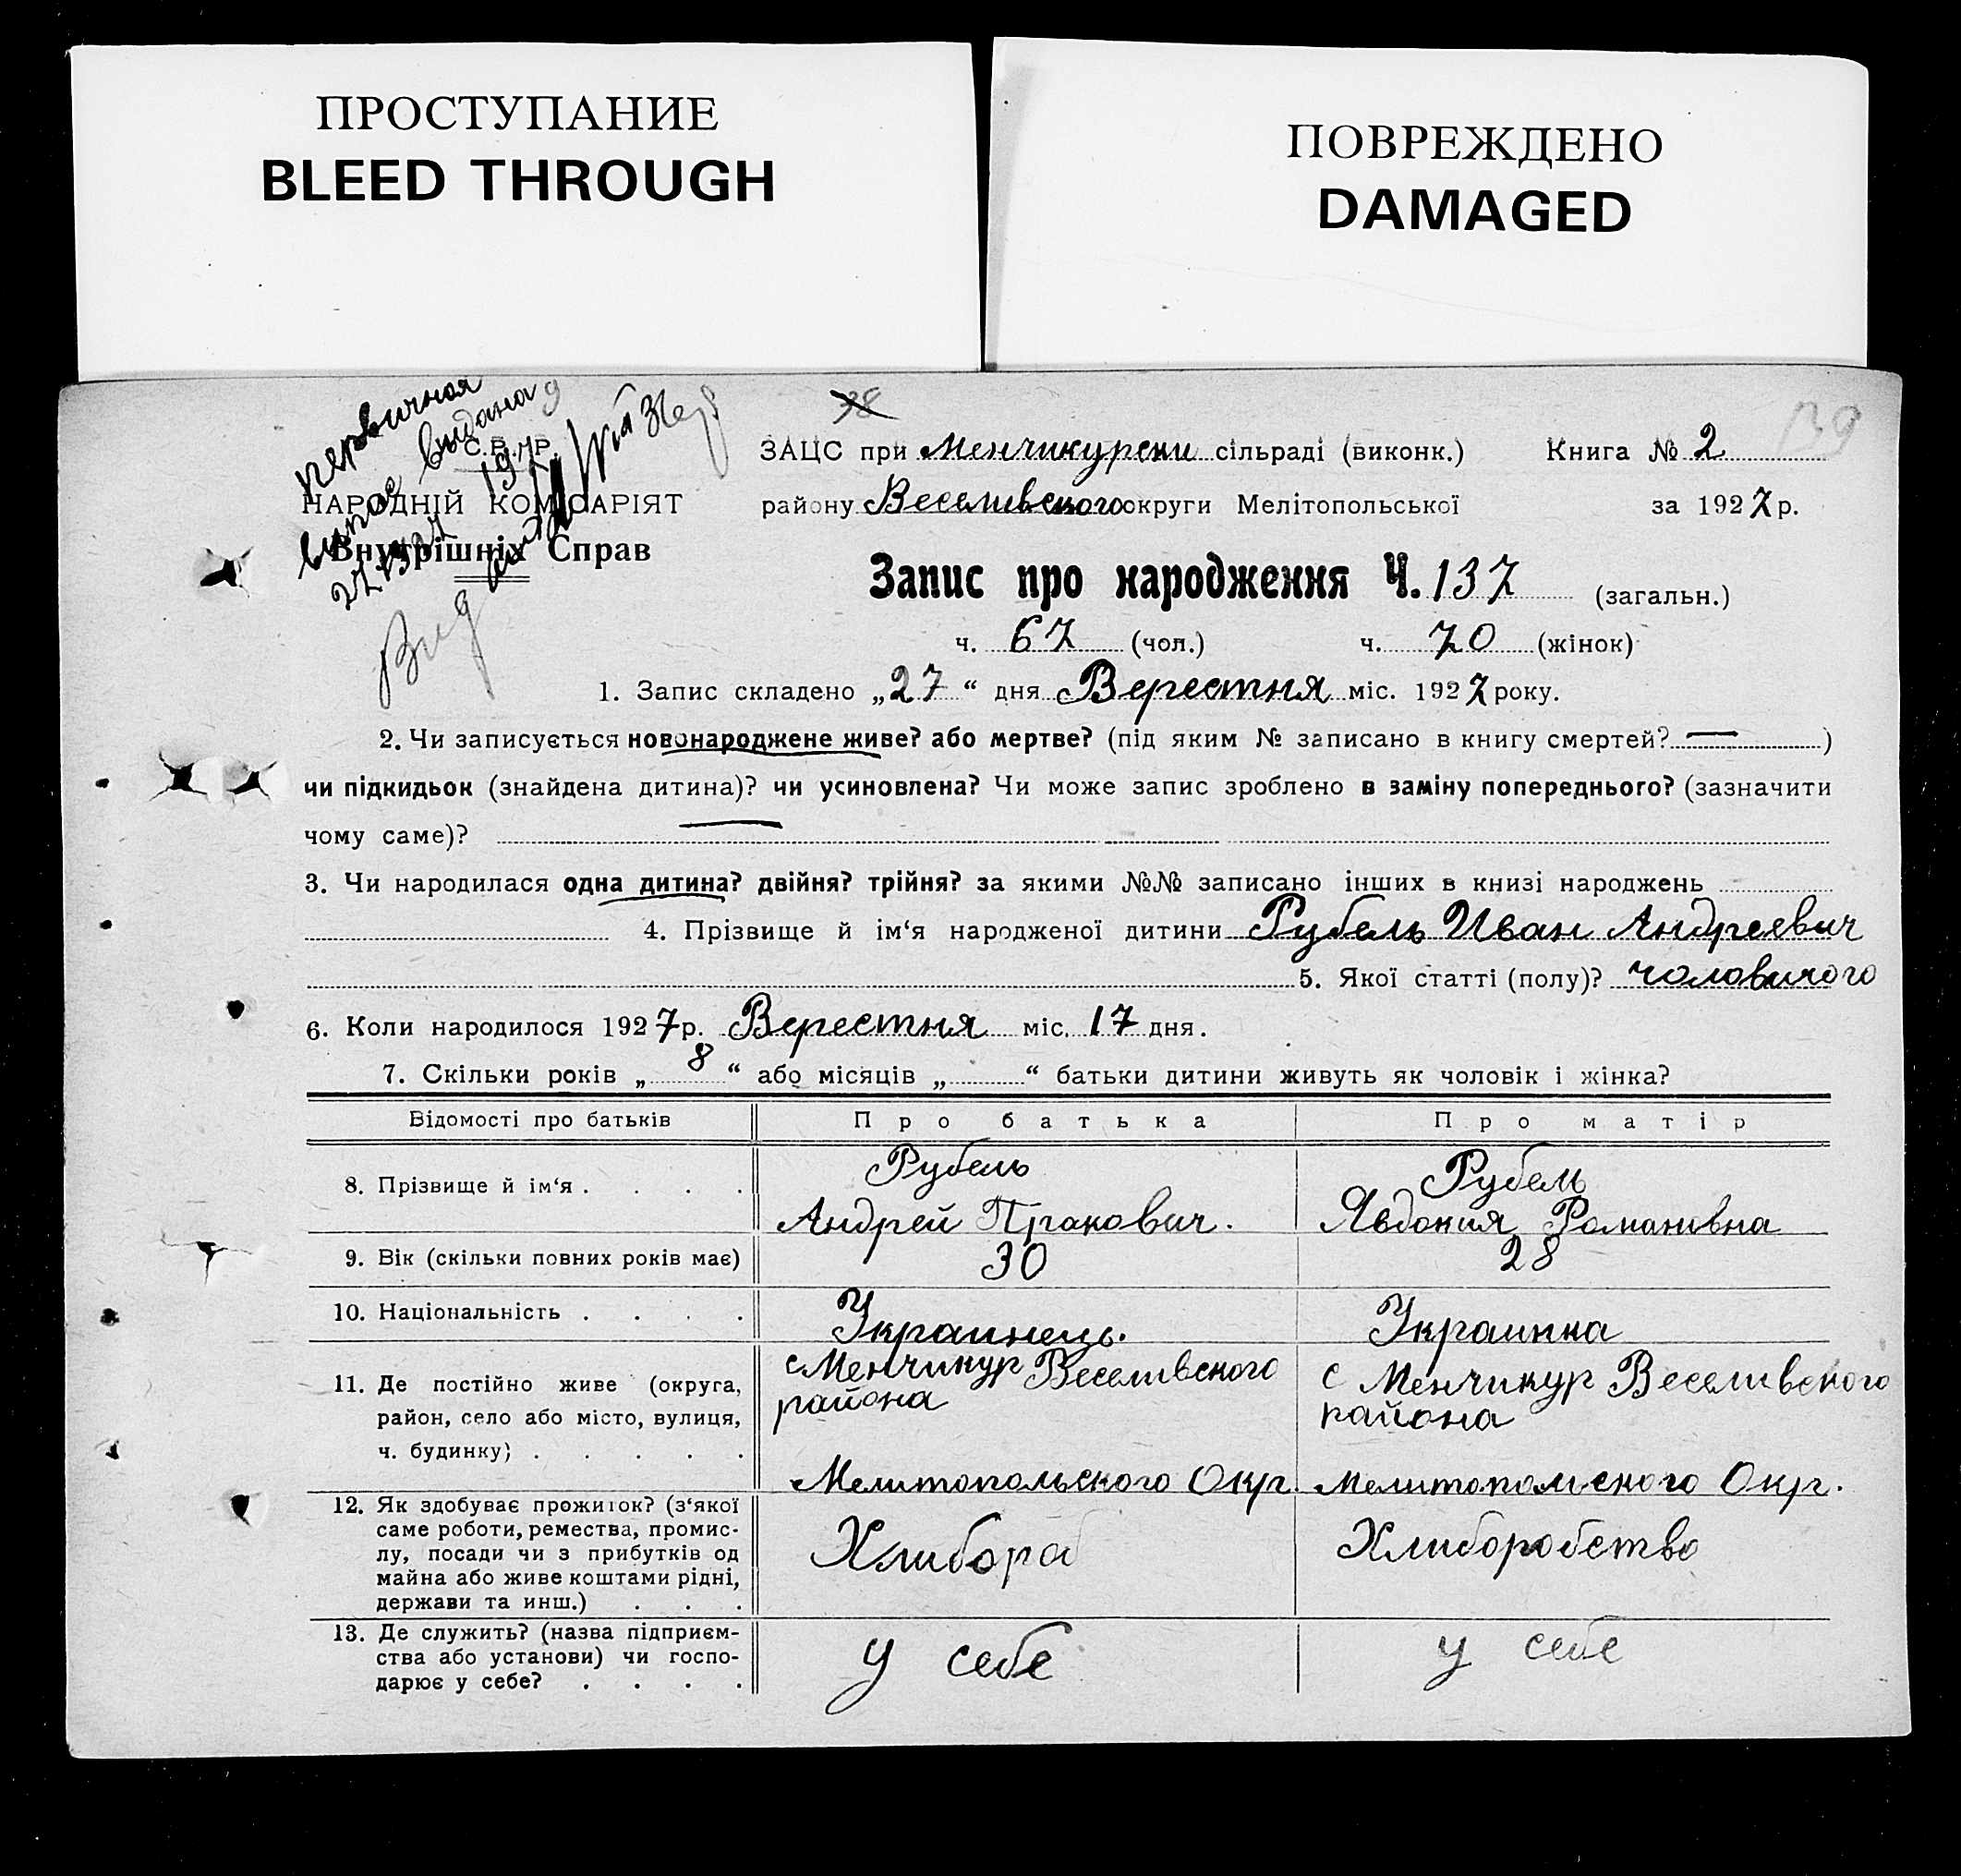 ПРОСТУПАНИЕ
BLEED THROUGH
ПОВРЕЖДЕНО
DAMAGED
первичная
выдана
38
139
ЗАЦС при Менчикурски сільраді (виконк.) Книга № 2
НАРОДНІЙ КОМІСАРІЯТ
району Веселивського округи Мелітопольської за 1927 р.
Внутрішніх Справ
Запис про народження Ч. 137 (загальн.)
ч. 67 (чол.) ч. 70 (жінок)
1. Запис складено „27“ дня Верестня міс. 1927 року.
2. Чи записується новонароджене живе? або мертве? (під яким № записано в книгу смертей? — )
чи підкидьок (знайдена дитина)? чи усиновлена? Чи може запис зроблено в заміну попереднього? (зазначити
чому саме)? —
3. Чи народилася одна дитина? двійня? трійня? за якими №№ записано інших в книзі народжень
4. Прізвище й ім‘я народженої дитини Рубель Иван Андреевич
5. Якої статті (полу)? чоловичого
6. Коли народилося 1927 р. Верестня міс. 17 дня.
7. Скільки років „ 8 “ або місяців „ “ батьки дитини живуть як чоловік і жінка?
Відомості про батьків Про батька Про матір
8. Прізвище й ім‘я . . . . Рубель Рубель
Андрей Явдокия Романивна
9. Вік (скільки повних років має) 30 28
10. Національність . . . . Украинець. Украинка
11. Де постійно живе (округа, с Менчикур Веселивского с Менчикур Веселивского
район, село або місто, вулиця, района района
ч. будинку) . . . . .
Мелитопольского Окр. Мелитопольского Окр.
12. Як здобуває прожиток? (з‘якої
саме роботи, ремества, промис-
лу, посади чи з прибутків од Хлибороб Хлиборобство
майна або живе коштами рідні,
держави та инш.) . . .
13. Де служить? (назва підприєм-
ства або установи) чи госпо- у себе у себе
дарює у себе? . . . .